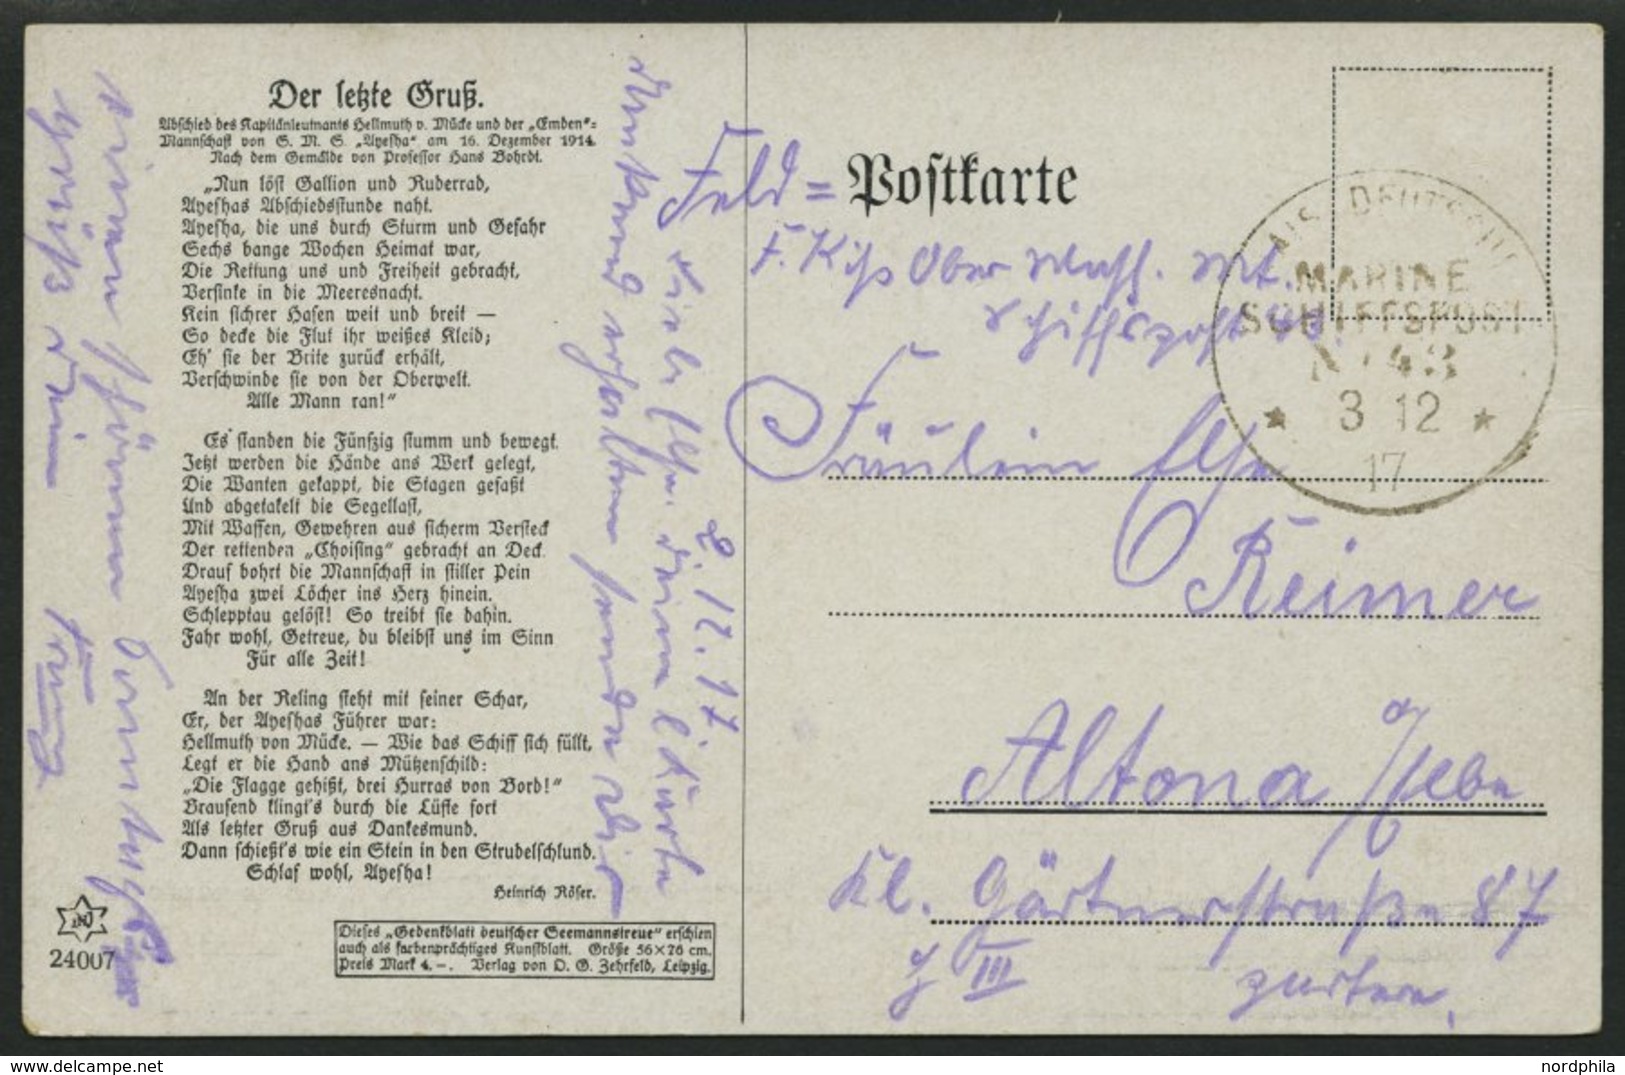 Der letzte Gruß.
Abschied des Kapitänleutnants Hellmuth v. Mücke und der „Emden"=
Mannschaft von S. M. S. „Ayesha" am 16. Dezember 1914.
Nach dem Gemälde von Professor Hans Bohrdt.
„Nun löst Gallion und Ruderrad,
Ayeshas Abschiedsstunde naht.
Ayesha, die uns durch Sturm und Gefahr
Sechs bange Wochen Heimat war,
Die Rettung uns und Freiheit gebracht,
Versinke in die Meeresnacht.
Kein sichrer Hafen weit und breit —
So decke die Flut ihr weißes Kleid;
Eh' sie der Brite zurück erhält,
Verschwinde sie von der Oberwelt.
Alle Mann ran!"
Es standen die Fünfzig stumm und bewegt.
Jetzt werden die Hände ans Werk gelegt,
Die Wanten gekappt, die Stagen gefaßt
Und abgetakelt die Segellast,
Mit Waffen, Gewehren aus sicherm Versteck
Der rettenden „Choising" gebracht an Deck.
Drauf bohrt die Mannschaft in stiller Pein
Ayesha zwei Löcher ins Herz hinein.
Schlepptau gelöst! So treibt sie dahin.
Fahr wohl, Getreue, du bleibst uns im Sinn
Für alle Zeit!
An der Reling steht mit seiner Schar,
Er, der Ayeshas Führer war:
Hellmuth von Mücke. — Wie das Schiff sich füllt,
Legt er die Hand ans Mützenschild:
„Die Flagge gehißt, drei Hurras von Bord!"
Brausend klingt's durch die Lüfte fort
Als letzter Gruß aus Dankesmund.
Dann schießt's wie ein Stein in den Strudelschlund.
Schlaf wohl, Ayesha!
Heinrich Röser.
24007
Dieses „Gedenkblatt deutscher Seemannstreue" erschien
auch als farbenprächtiges Kunstblatt. Größe 56×76 cm.
Preis Mark 4.–. Verlag von O. G. Zehrfeld, Leipzig.
2. 12. 17.
Liebe Else. deine l. Karte
dankend erhalten sende dir
Feld = Postkarte
Ober
Schiffspost
MARINE
SCHIFFSPOST
3 12
17
Fräulein Else
Reimer
Altona / Elbe
Kl. Gärtnerstraße 87
III
nordphila.com